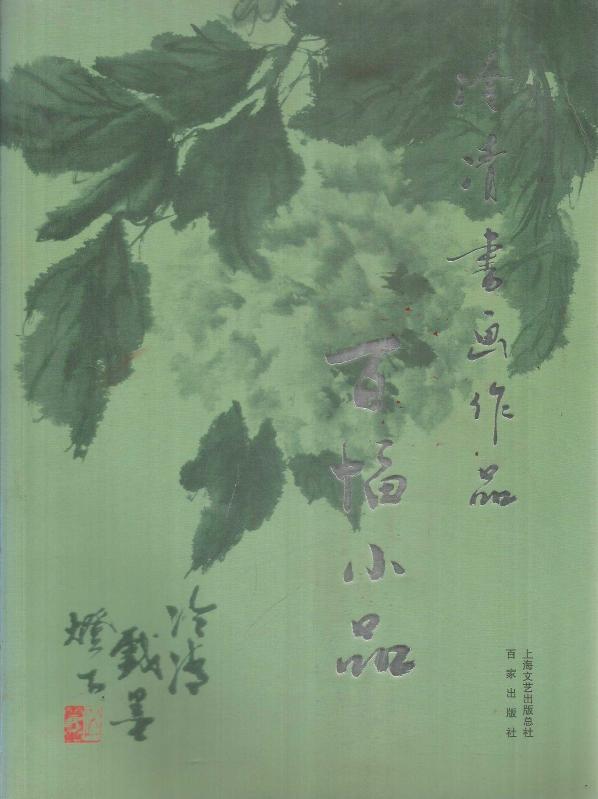 冷清书画作品
百幅小品
上海文艺出版总社
百家出版社
冷清
戏墨
灯下